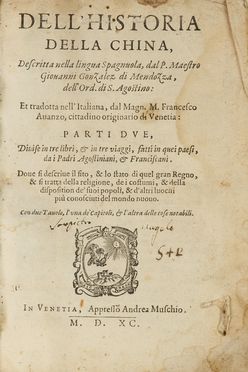 DELL'HISTORIA
DELLA CHINA,
Descritta nella lingua Spagnuola, dal P. Maestro
Giouanni Gonzalez di Mendozza,
dell'Ord. di S. Agostino:
Et tradotta nell'Italiana, dal Magn. M. Francesco
Auanzo, cittadino originario di Venetia:
PARTI DVE,
Diuise in tre libri, & in tre viaggi, fatti in quei paesi,
da i Padri Agostiniani, & Franciscani.
Doue si descriue il sito, & lo stato di quel gran Regno,
& si tratta della religione, de i costumi, & della
disposition de' suoi popoli, & d'altri luochi
più conosciuti del mondo nuouo.
Con due Tauole, l'vna de' Capitoli, & l'altra delle cose notabili.
IN VENETIA, Appresso Andrea Muschio.
M. D. XC.